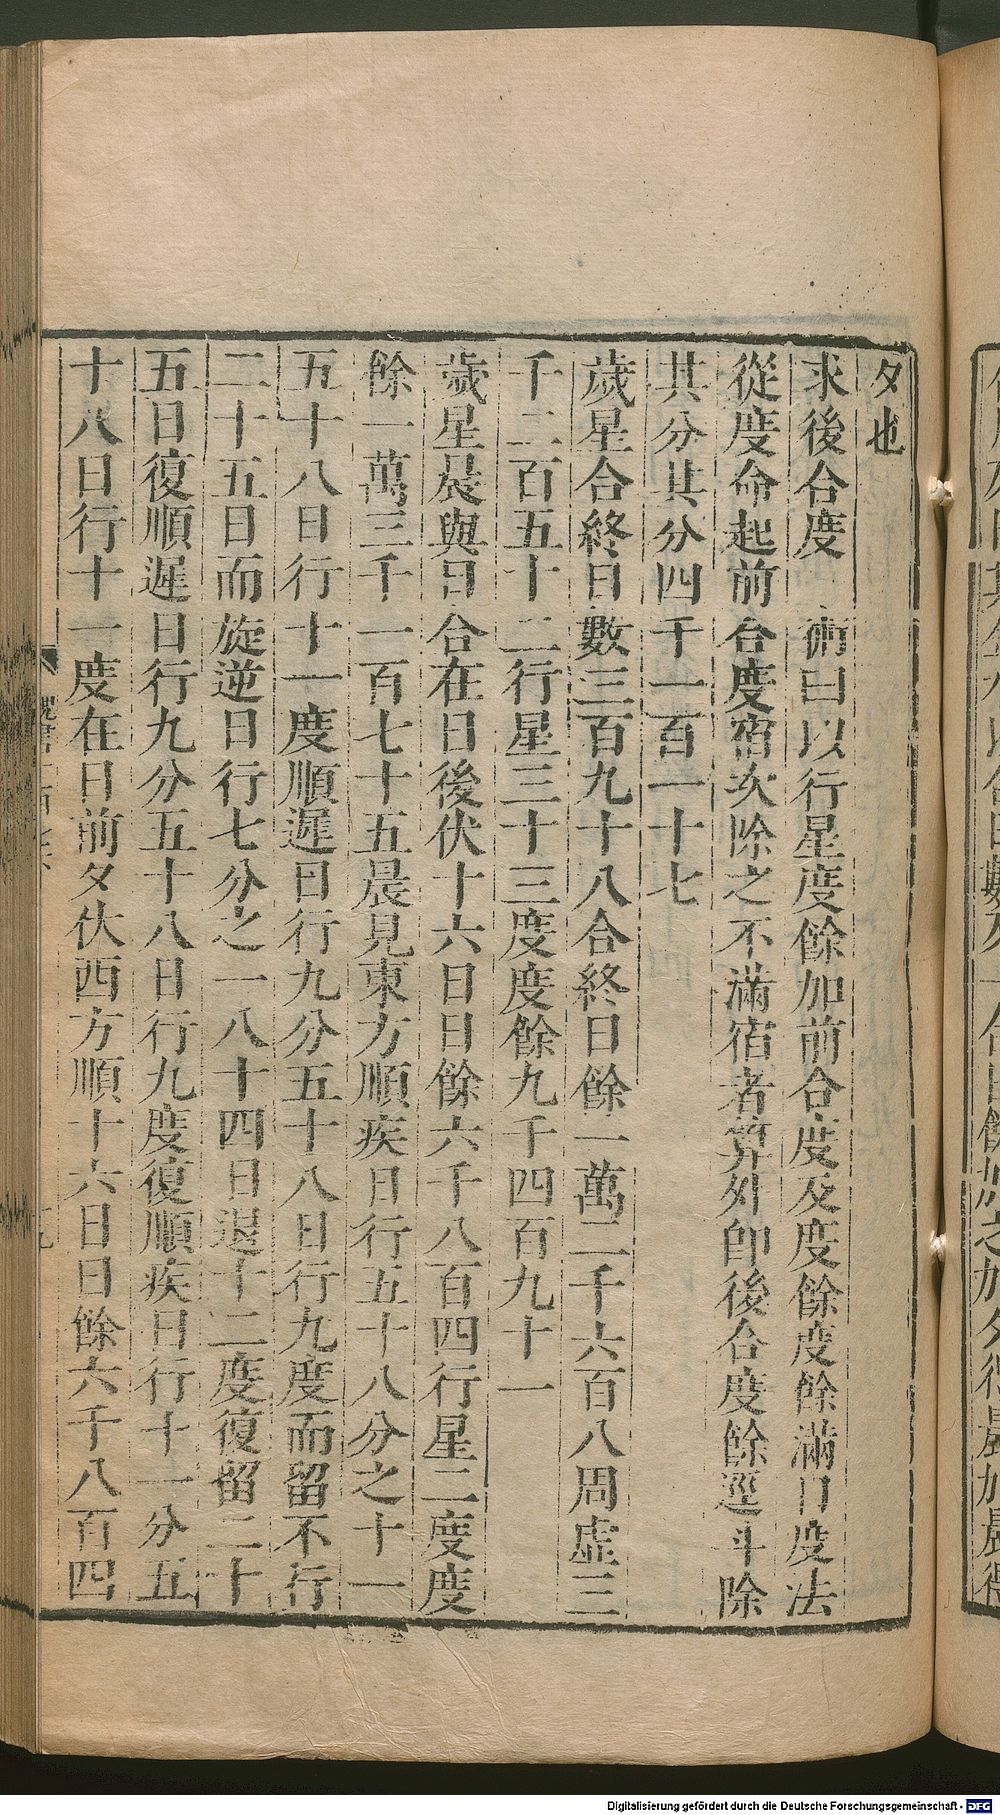 夕也
求後合度　術曰以行星度餘加前合度及度餘度餘滿日度法
從度命起前合度宿次除之不滿宿者算外卽後合度餘逕斗除
其分其分四千一百一十七
歲星合終日數三百九十八合終日餘一萬二千六百八周虛三
千二百五十二行星三十三度度餘九千四百九十一
歲星晨與日合在日後伏十六日日餘六千八百四行星二度度
餘一萬三千一百七十五晨見東方順疾日行五十八分之十一
五十八日行十一度順遲日行九分五十八日行九度而留不行
二十五日而旋逆日行七分之一八十四日退十二度復留二十
五日復順遲日行九分五十八日行九度復順疾日行十一分五
十八日行十一度在日前夕伏西方順十六日日餘六千八百四
Digitalisierung gefördert durch die Deutsche Forschungsgemeinschaft - DFG